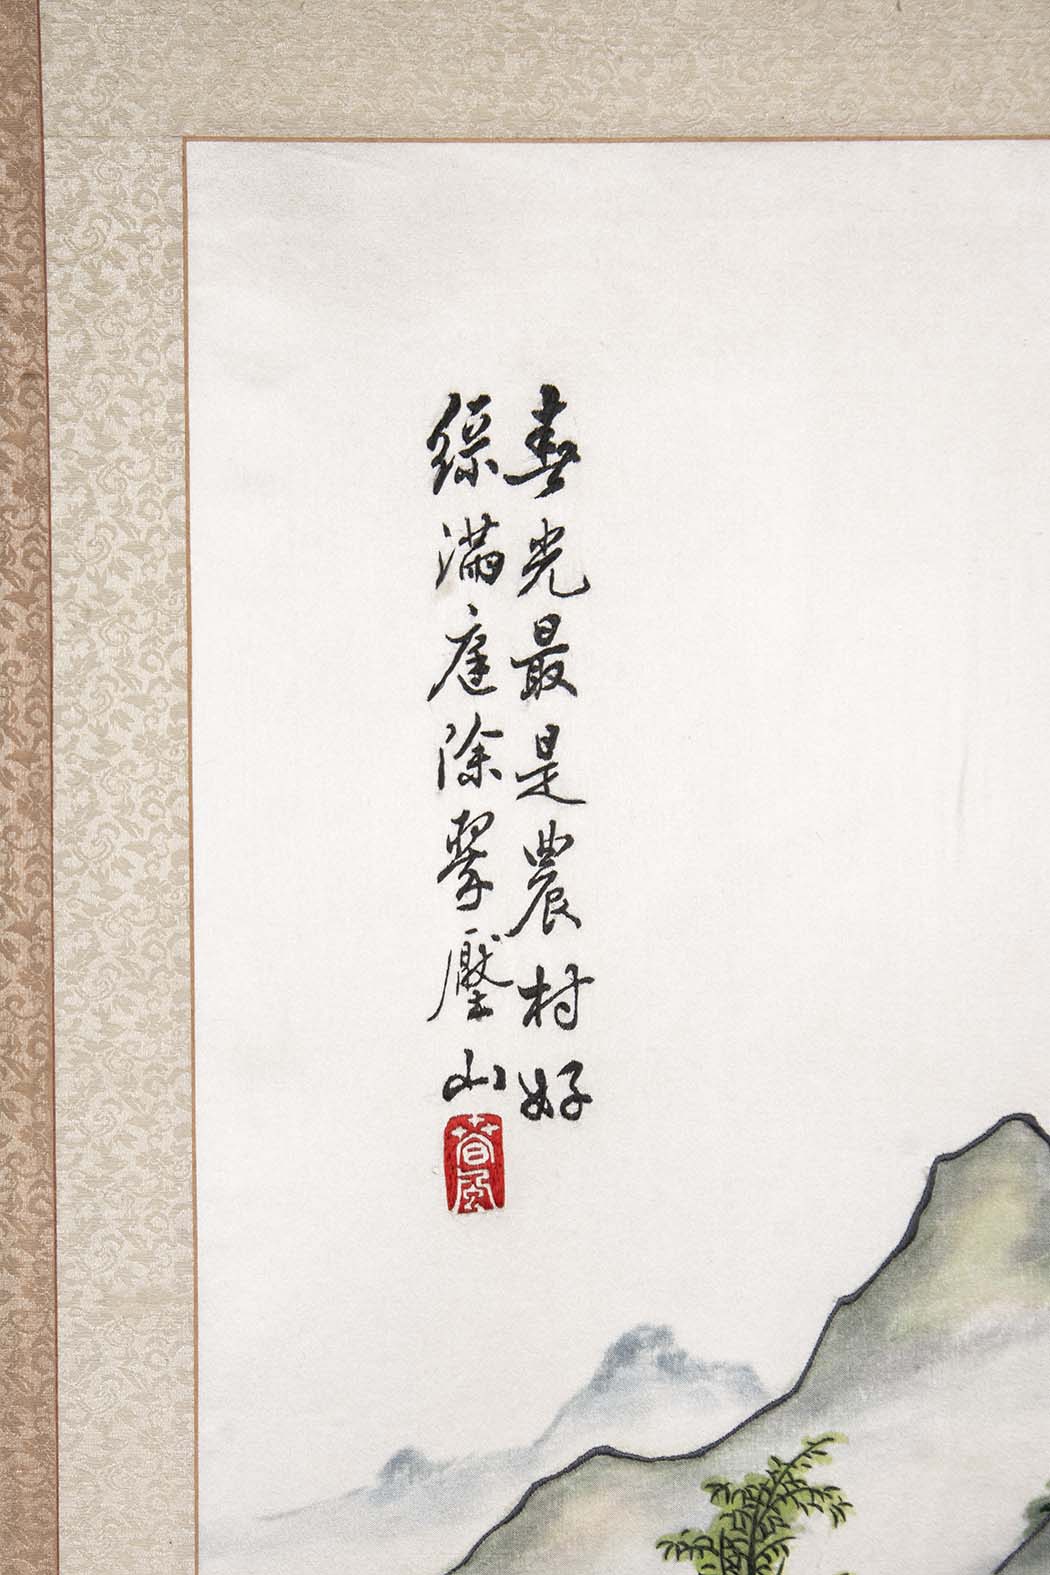 春光最是農村好
綵滿庭除翠壓山
春風